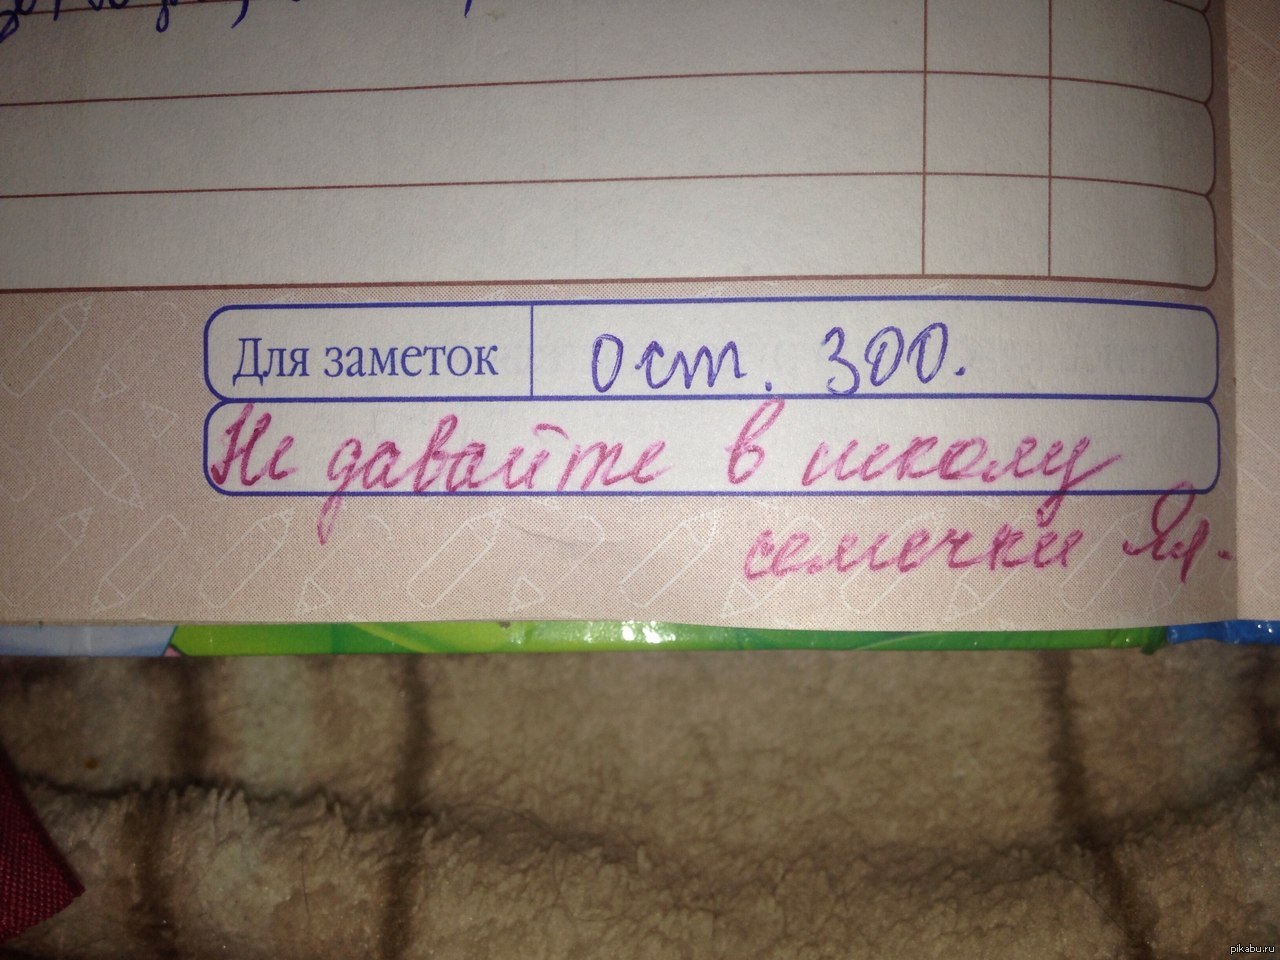 Для заметок ост. 300.
Не давайте в школу
семечки
pikabu.ru